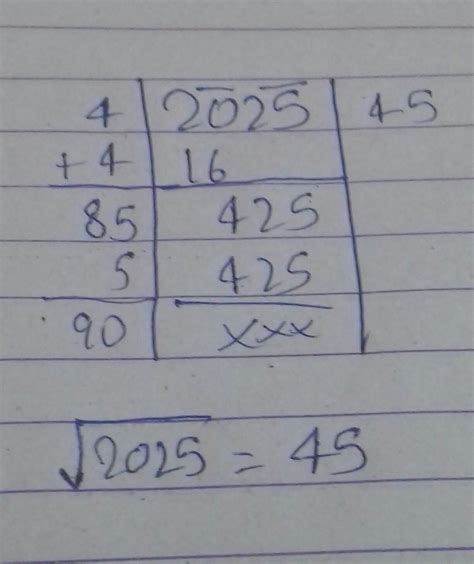 4 2025 45
+4 16
85 425
5 425
90 xxx
√2025 = 45